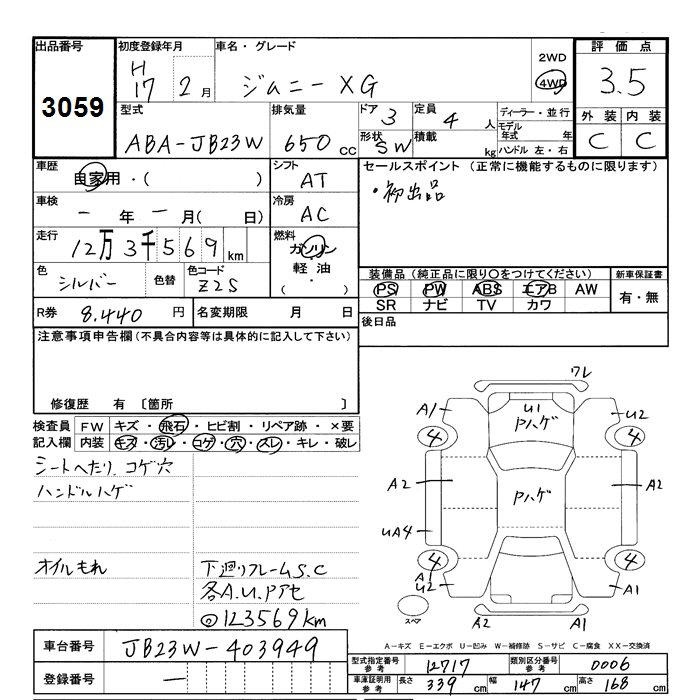 出品番号
3059
初度登録年月
H17 2月
車名・グレード
ジムニー XG
2WD
4WD
評価点
3.5
外装 内装
C C
型式
ABA-JB23W
排気量
650 cc
ドア 3
形状 SW
定員 4 人
積載 kg
ディーラー・並行
モデル年式 年
ハンドル 左・右
車歴
自家用・( )
シフト
AT
セールスポイント (正常に機能するものに限ります)
・初出品
車検
ー年ー月( 日)
冷房
AC
走行
12万3千569km
燃料
ガソリン
軽油
( ・ )
色
シルバー
色替
色コード
Z2S
装備品 (純正品に限り○をつけてください)
PS PW ABS エアB AW
SR ナビ TV カワ
新車保証書
有・無
R券 8.440 円
名変期限 月 日
後日品
注意事項申告欄(不具合内容等は具体的に記入して下さい)
修復歴 有 〔箇所 〕
検査員記入欄
FW キズ・飛石・ヒビ割・リペア跡・×要
内装 キズ・汚レ・コゲ・穴・スレ・キレ・破レ
シートへたり、コゲ穴
ハンドルハゲ
オイルもれ
下廻りフレームS.C
各A.U.Pアセ
◎123569km
ワレ
A1 U1 Pハゲ U2
4 4
A2 Pハゲ A2
UA4
4 4
A1
U2 A1
スペア
A2 A1
A-キズ E-エクボ U-凹み W-補修跡 S-サビ C-腐食 XX-交換済
車台番号 JB23W-403949
登録番号 ー
型式指定番号 参考 12717 類別区分番号 参考 0006
車庫証明用 参考 長さ 339 cm 幅 147 cm 高さ 168 cm